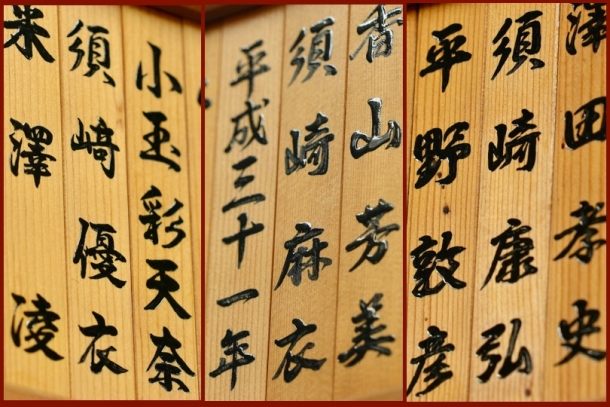 澤田孝史
須崎康弘
平野敦彦
香山芳美
須崎麻衣
平成三十一年
小玉彩天奈
須﨑優衣
米澤凌